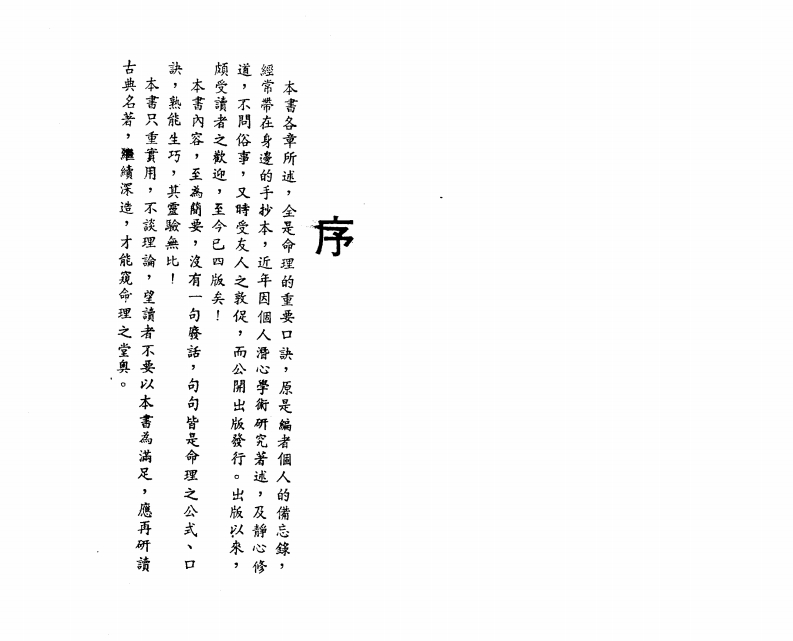 序
本書各章所述，全是命理的重要口訣，原是編者個人的備忘錄，
經常帶在身邊的手抄本，近年因個人潛心學術研究著述，及靜心修
道，不問俗事，又時受友人之敦促，而公開出版發行。出版以來，
頗受讀者之歡迎，至今已四版矣！
本書內容，至為簡要，沒有一句廢話，句句皆是命理之公式、口
訣，熟能生巧，其靈驗無比！
本書只重實用，不談理論，望讀者不要以本書為滿足，應再研讀
古典名著，繼續深造，才能窺命理之堂奧。